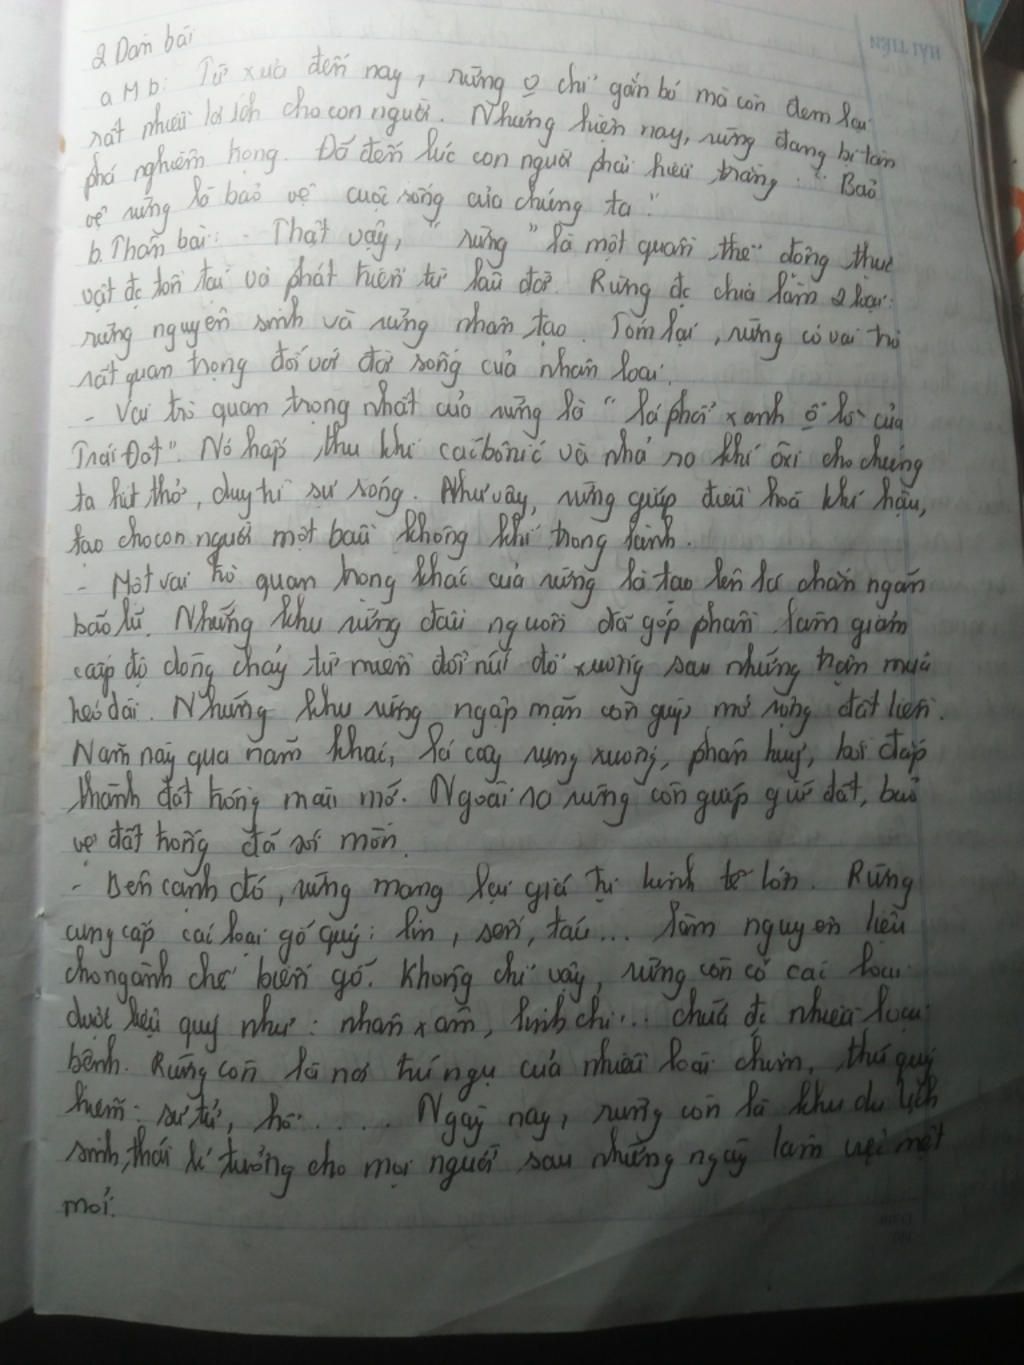 2 Dàn bài
a Mb: Từ xưa đến nay, rừng o chỉ gắn bó mà còn đem lại
rất nhiều lợi ích cho con người. Nhưng hiện nay, rừng đang bị tàn
phá nghiêm trọng. Đã đến lúc con người phải hiểu trằng: "Bảo
vệ rừng là bảo vệ cuộc sống của chúng ta."
b. Thân bài: - Thật vậy, "rừng" là một quần thể động thực
vật đc tồn tại và phát triển từ lâu đời. Rừng đc chia làm 2 loại:
rừng nguyên sinh và rừng nhân tạo. Tóm lại, rừng có vai trò
rất quan trọng đối với đời sống của nhân loại.
- Vai trò quan trọng nhất của rừng là "lá phổi xanh của
Trái Đất". Nó hấp thu khí cácbôníc và nhả ra khí ôxi cho chúng
ta hít thở, duy trì sự sống. Như vậy, rừng giúp điều hoà khí hậu,
tạo cho con người một bầu không khí trong lành.
- Một vai trò quan trọng khác của rừng là tạo lên lá chắn ngăn
bão lũ. Những khu rừng đầu nguồn đã góp phần làm giảm
cấp độ dòng chảy từ miền đồi núi đổ xuống sau những trận mưa
kéo dài. Những khu rừng ngập mặn còn giúp mở rộng đất liền.
Năm này qua năm khác, lá cây rụng xuống, phân huỷ, bồi đắp
thành đất trồng màu mỡ. Ngoài ra rừng còn giúp giữ đất, bảo
vệ đất trồng đá sói mòn.
- Bên cạnh đó, rừng mang lại giá trị kinh tế lớn. Rừng
cung cấp các loại gỗ quý: lim, sến, táu... làm nguyên liệu
cho ngành chế biến gỗ. Không chỉ vậy, rừng còn có các loại
dược liệu quý như: nhân xâm, linh chi... chữa đc nhiều loại
bệnh. Rừng còn là nơi trú ngụ của nhiều loài chim, thú quý
hiếm: sư tử, hổ..... Ngày nay, rừng còn là khu du lịch
sinh thái lí tưởng cho mọi người sau những ngày làm việc mệt
mỏi.
HẢI TIẾN